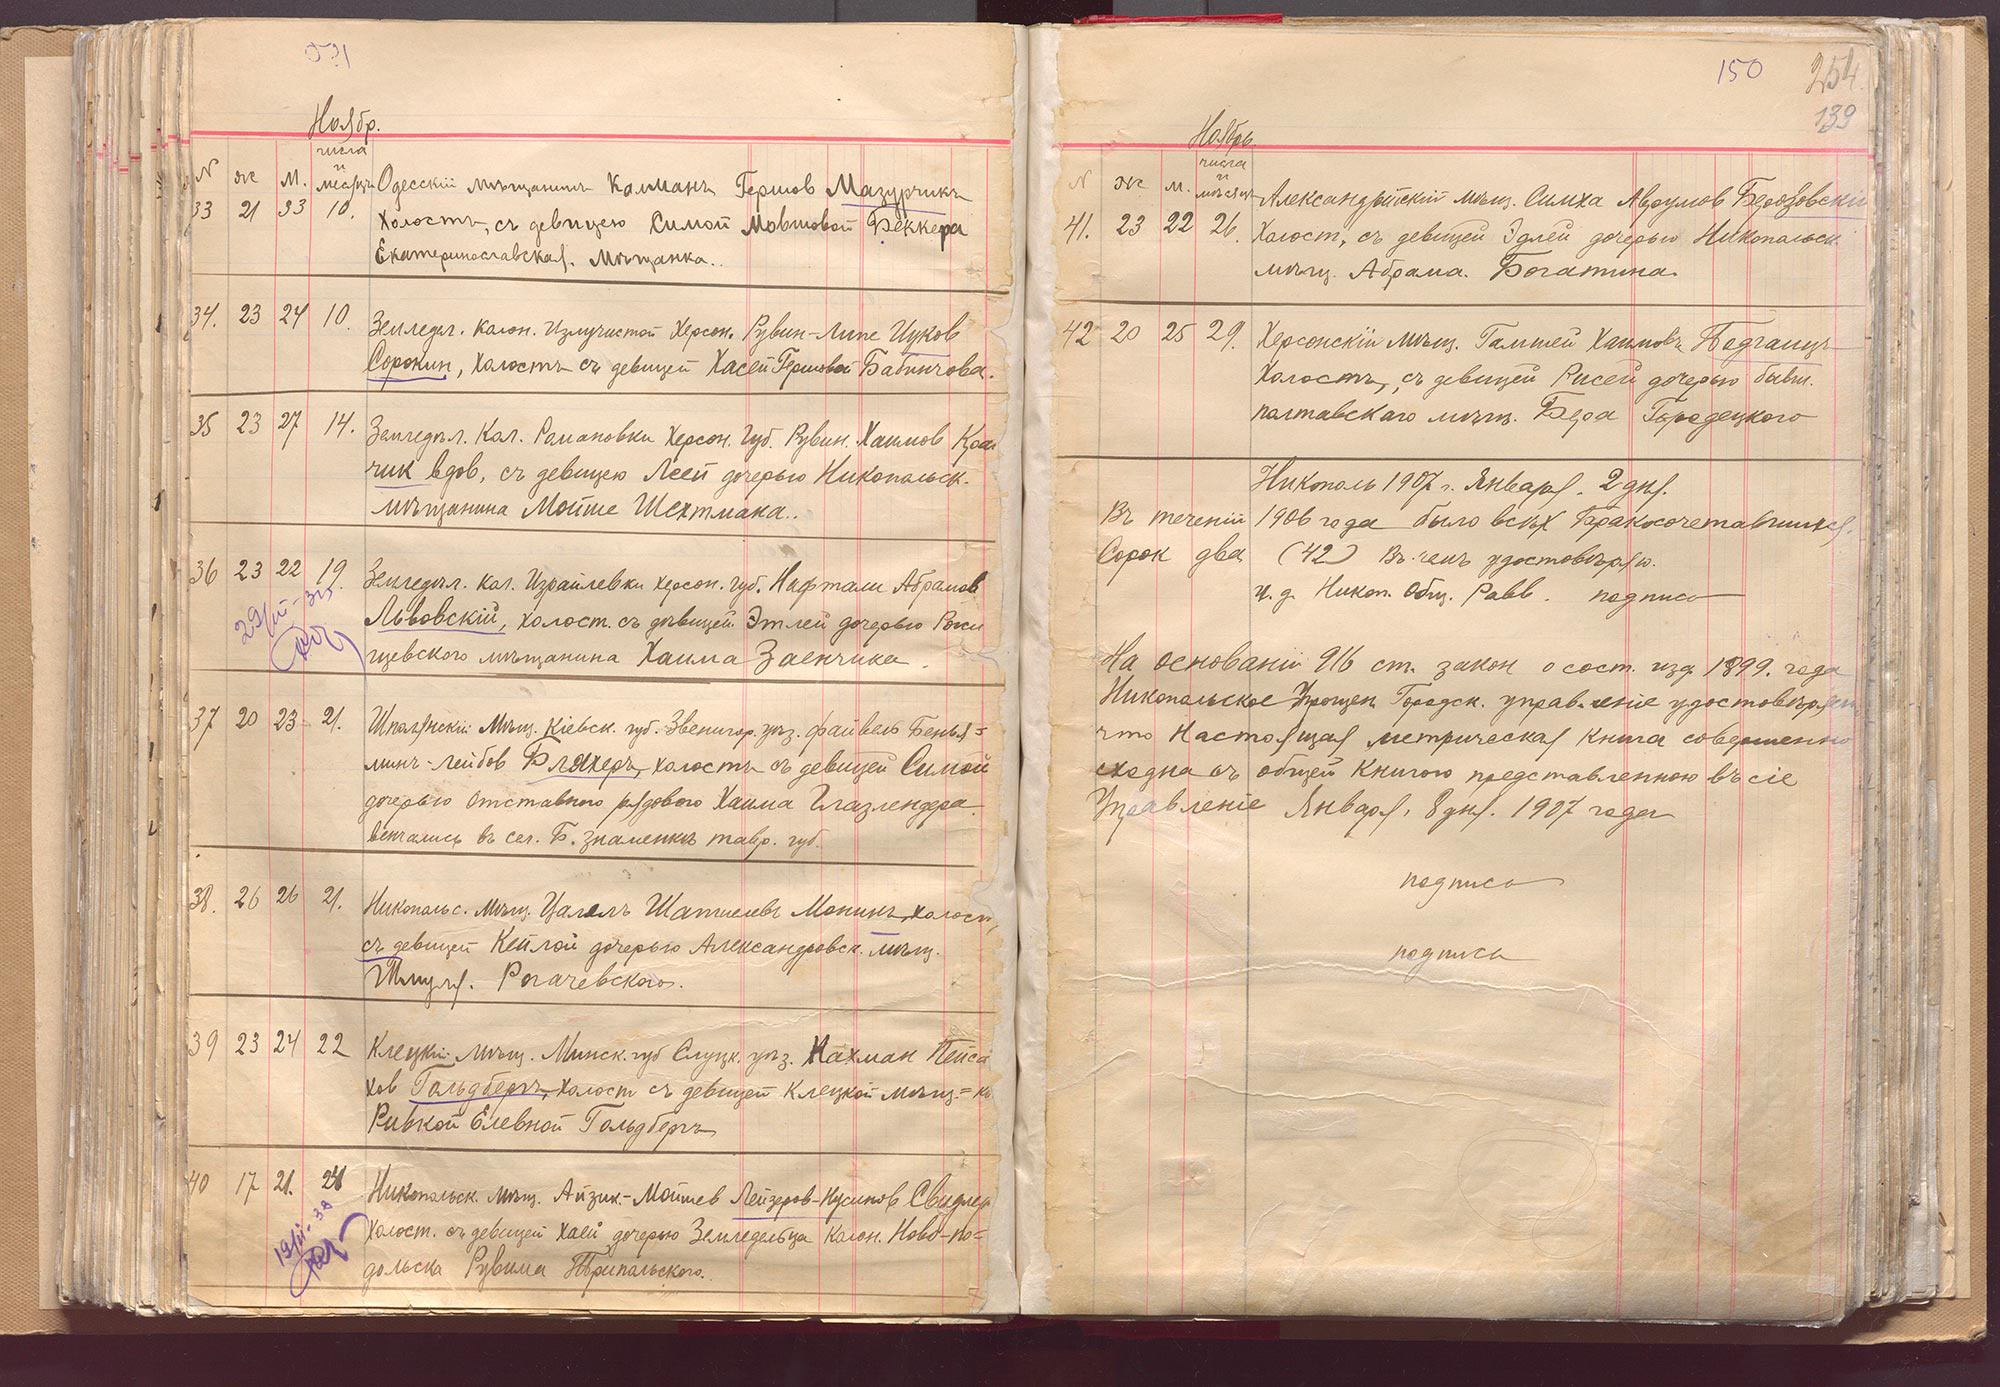 Ноябр.
числа
и
N ж м. месяцъ
33 21 33 10.
Одесскій мѣщанинъ Калманъ Гершов Мазурчикъ
Холостъ, съ девицею Симой Мовшовой Беккера
Екатеринославская. Мѣщанка..
34. 23 24 10.
Земледѣл. Колон. Излучистой Херсон. Рувин-Липе Ицков
Сорокин, Холостъ съ девицей Хасей Гершовой Бабинчова.
35 23 27 14.
Земледѣл. Кол. Романовки Херсон. Губ. Рувин. Хаимов Кра-
чик вдов, съ девицею Леей дочерью Никопольск.
мѣщанина Мойше Шехтмана..
36 23 22 19.
Земледѣл. кол. Израилевки Херсон. губ. Нафтали Абрамов
Львовскій, холост. съ дѣвицей Этлей дочерью
щевского мѣщанина Хаима Заенчика.
37 20 23 21.
Шполянскій Мѣщ. Кіевск. губ. Звенигор. уѣз. Файвель Бенья=
минъ-Лейбов Бляхеръ, холостъ съ девицей Симой
дочерью отставного рядового Хаима Глазлендера.
венчались въ сел. Б. Знаменкѣ тавр. губ.
38. 26 26 21.
Никопольс. Мѣщ. Цалелъ Шатиелевъ Монинъ, холост,
съ девицей Кейлой дочерью Александровск. мѣщ.
Шмуля. Рогачевского.
39 23 24 22
Клецкій мѣщ. Минск. губ Слуцк. уѣз. Нахман Пейса
хов Гольдбергъ, холост съ девицей Клецкой мѣщ=к
Ривкой Елевной Гольдбергъ
40 17 21. 24
Никопольск. мѣщ. Айзик-Мойшев Лейзеров-Нусинов Свидлер
Холост. съ девицей Хаей дочерью Земледельца колон. Ново-по=
дольска Рувима Трипольского.
150 254
139
Ноябрь
числа
и
N ж м. мѣсяцъ
41. 23 22 26.
Александрійскій мѣщ. Симха Аврумов Березовскій
Холост, съ девицей Эдлей дочерью Никопольск.
мѣщ. Абрама. Богатина.
42 20 25 29.
Херсонскій Мѣщ. Хаимовъ Подгаицъ
Холостъ, съ девицей Рисей дочерью бывш.
полтавскаго мѣщ. Бера Городецкого
Никополь 1907 г. Января. 2 дня.
Въ теченіи 1906 года было всѣх Бракосочетавшихся.
Сорок два (42) Въ чемъ удостовѣряю.
и. д. Никоп. Общ. Равв. подпись
На основаніи 916 ст. закон о сост. изд 1899. года
Никопольское Упрощен Городск. управленіе удостовѣряет
что Настоящая метрическая Книга совершенно
сходна съ общей Книгою представленною въ сіе
Управленіе Января. 8 дня. 1907 года
подпись
подпись